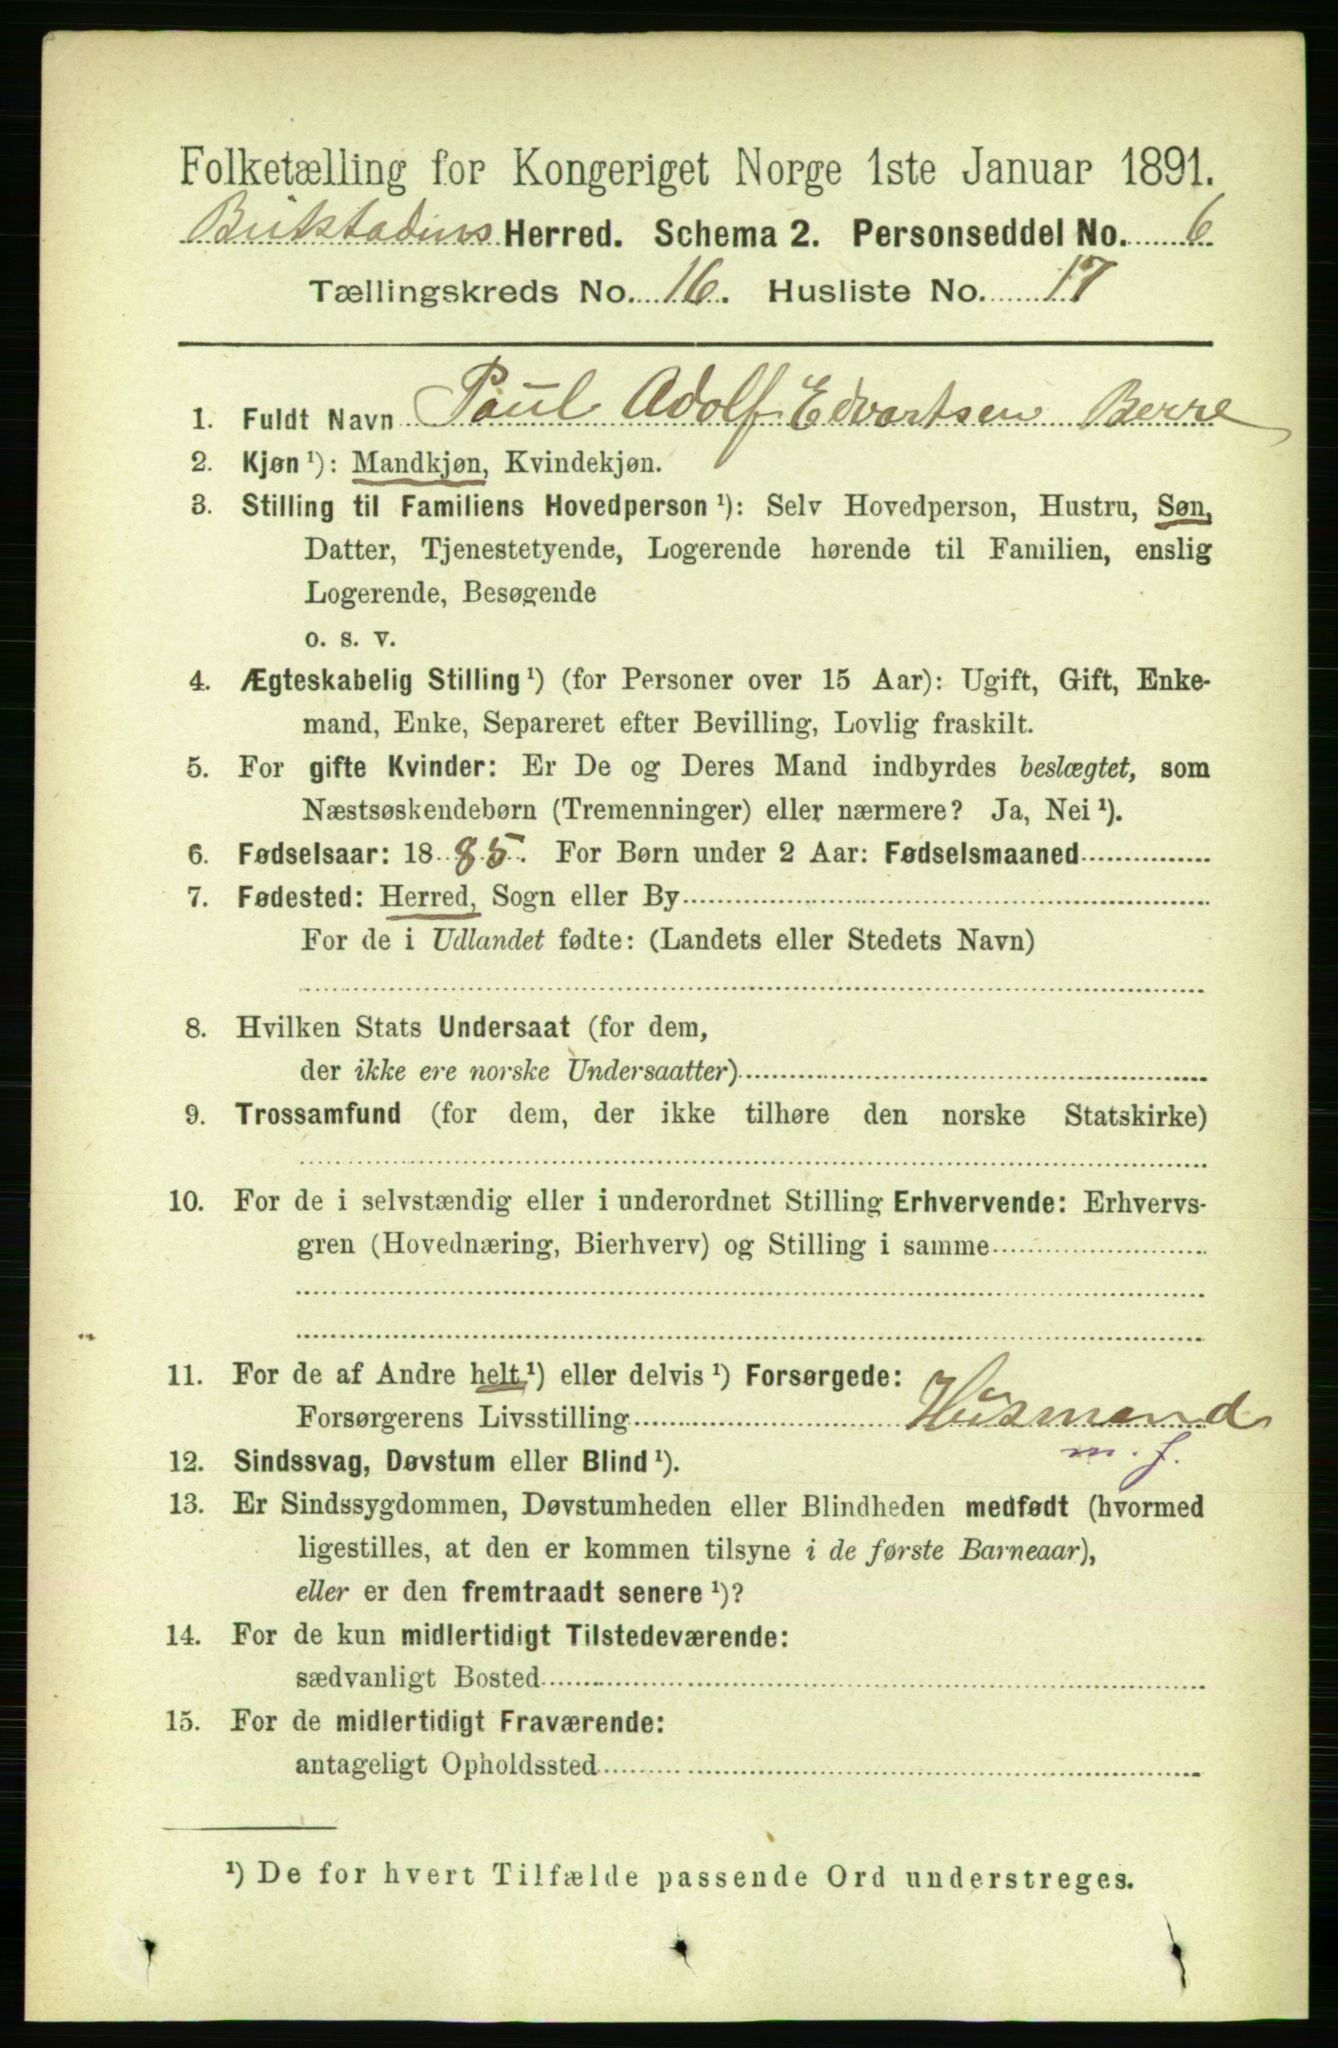 Folketælling for Kongeriget Norge 1ste Januar 1891.
Herred. Schema 2. Personseddel No. 6
Tællingskreds No. 16. Husliste No. 17
1. Fuldt Navn Paul Adolf Edvartsen Berre
2. Kjøn ¹): Mandkjøn, Kvindekjøn.
3. Stilling til Familiens Hovedperson ¹): Selv Hovedperson, Hustru, Søn,
Datter, Tjenestetyende, Logerende hørende til Familien, enslig
Logerende, Besøgende
o. s. v.
4. Ægteskabelig Stilling ¹) (for Personer over 15 Aar): Ugift, Gift, Enke-
mand, Enke, Separeret efter Bevilling, Lovlig fraskilt.
5. For gifte Kvinder: Er De og Deres Mand indbyrdes beslægtet, som
Næstsøskendebørn (Tremenninger) eller nærmere? Ja, Nei ¹).
6. Fødselsaar: 1885. For Børn under 2 Aar: Fødselsmaaned
7. Fødested: Herred, Sogn eller By
For de i Udlandet fødte: (Landets eller Stedets Navn)
8. Hvilken Stats Undersaat (for dem,
der ikke ere norske Undersaatter)
9. Trossamfund (for dem, der ikke tilhøre den norske Statskirke)
10. For de i selvstændig eller i underordnet Stilling Erhvervende: Erhvervs-
gren (Hovednæring, Bierhverv) og Stilling i samme
11. For de af Andre helt ¹) eller delvis ¹) Forsørgede:
Forsørgerens Livsstilling Husmand
m. j.
12. Sindssvag, Døvstum eller Blind ¹).
13. Er Sindssygdommen, Døvstumheden eller Blindheden medfødt (hvormed
ligestilles, at den er kommen tilsyne i de første Barneaar),
eller er den fremtraadt senere ¹)?
14. For de kun midlertidigt Tilstedeværende:
sædvanligt Bosted
15. For de midlertidigt Fraværende:
antageligt Opholdssted
¹) De for hvert Tilfælde passende Ord understreges.